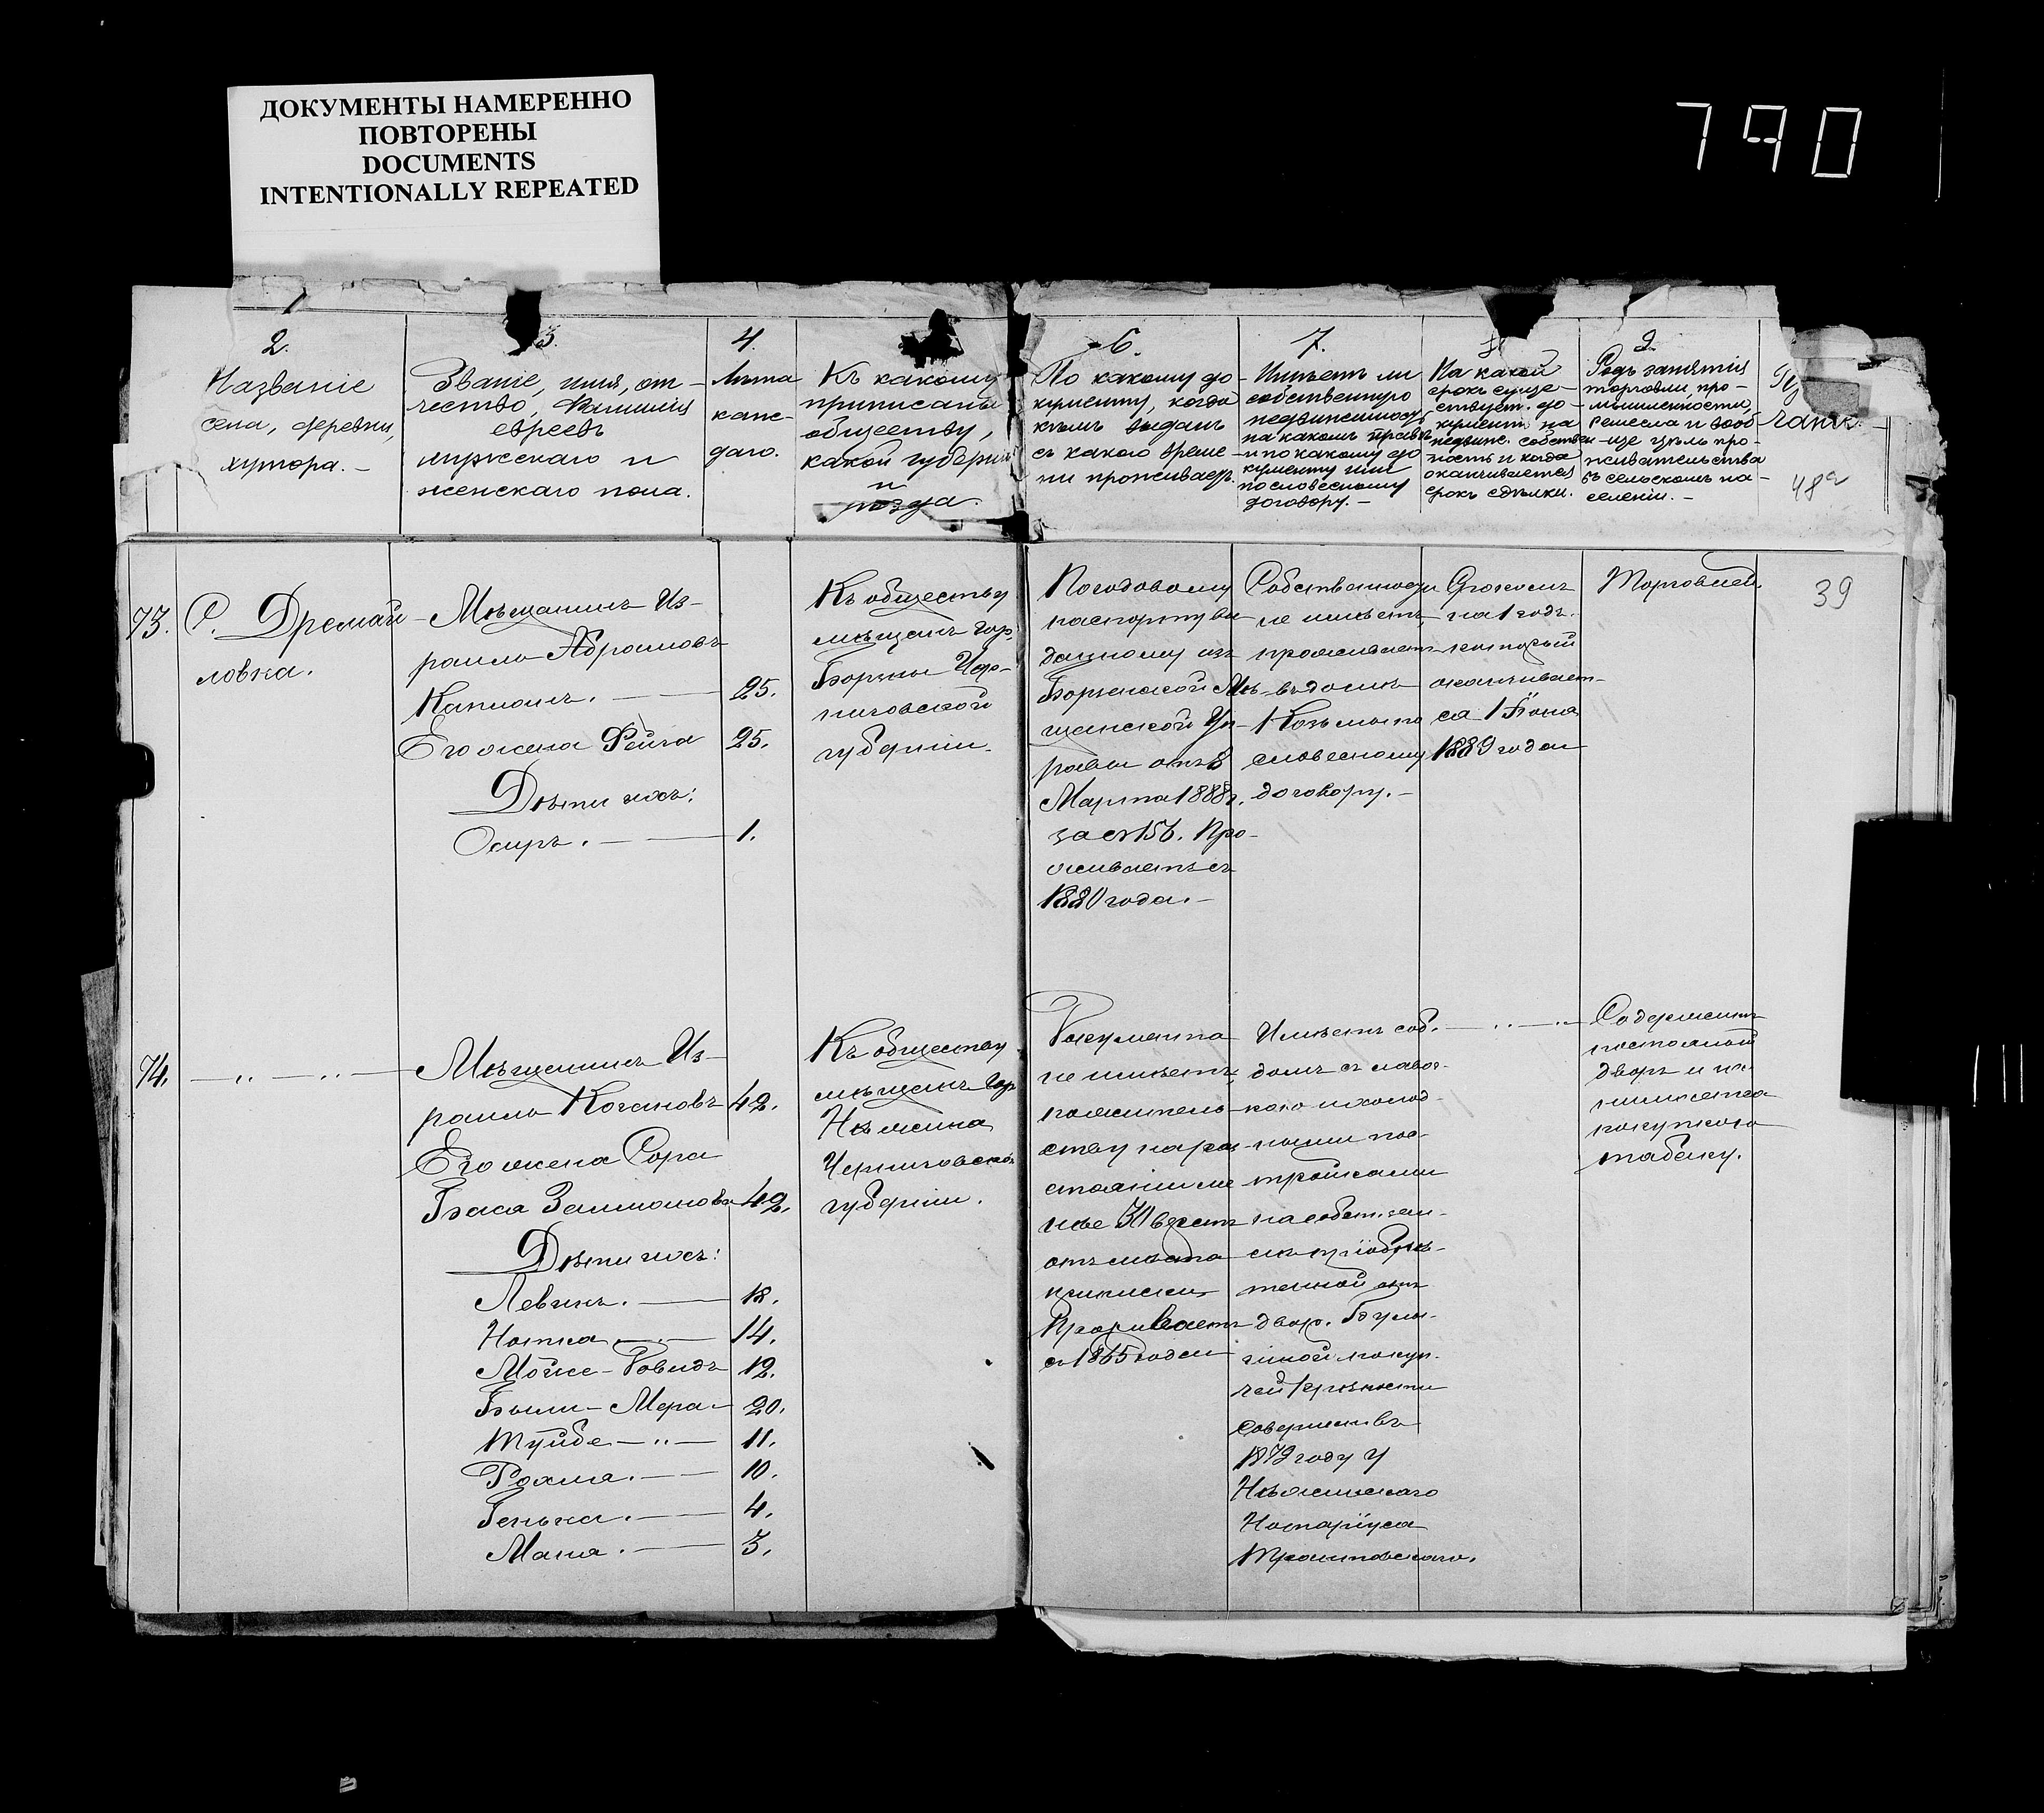 ДОКУМЕНТЫ НАМЕРЕННО
ПОВТОРЕНЫ
DOCUMENTS
INTENTIONALLY REPEATED
790
2.
Названіе
села, деревни,
хутора. –
3.
Званіе, имя, от-
чество, фамилія
евреевъ
мужскаго и
женскаго пола.
4.
Лѣта
каж-
даго.
Къ какому
приписаны
обществу,
какой губерніи
и
уѣзда.
6.
По какому до-
кументу, когда
кѣмъ выданъ
съ какого време-
ни проживаетъ.
7.
Имѣетъ ли
собственную
недвижимость
на какомъ правѣ
и по какому до
кументу или
по словесному
договору. –
На какой
срокъ суще-
ствует. до-
кументъ на
недвиж. собствен-
ность и когда
оканчивается
срокъ сдѣлки.
9.
Родъ занятія
торговли, про-
мышленности,
ремесла и вооб
ще цѣль про-
живательства
въ сельскомъ на-
селеніи. –
чаніе. –
48
39
73.
С. Дремай-
ловка.
Мѣщанинъ Из-
раиль Абрамовъ
Капланъ. — 25.
Его жена Фейга 25.
Дѣти ихъ:
Осиръ. — 1.
Къ обществу
мѣщанъ гор.
Борзны Чер-
ниговской
губерніи.
Погодовому
паспорту вы
данному изъ
Борзенской Мѣ-
щанской Уп-
равы отъ 8
Марта 1888 г.
за № 156. Про-
живаетъ съ
1880 года. –
Собственности
не имѣетъ,
проживаетъ
въ домѣ
по
словесному
договору. –
Срокомъ
на 1 годъ.
который
оканчивает-
ся 1 Іюня
1889 года
Торговлей.
74. — „ — „ —
Мѣщанинъ Из-
раиль Кагановъ 42.
Его жена Сора
Бася Залмановна 42.
Дѣти ихъ:
Левикъ. — 18.
Нотка — 14.
Мойше-Довидъ 12.
Быля-Мера — 20.
Туйбе — „ — 11.
Рохля. — 10.
Генька. — 4.
Маня. — 3.
Къ обществу
мѣщанъ гор.
Нѣжина
Черниговской
губерніи.
Документа
не имѣетъ,
по жительству
на раз-
стояніи ме
нѣе 30 верстъ
отъ мѣста
приписки
Проживаетъ
съ 1865 года
Имѣетъ соб.
домъ съ лавоч-
кою и холод-
ными пос-
тройками
на собств. зем-
лѣ пріобрѣ-
тенной отъ
двор.
по куп-
чей крѣпости
соверш. въ
1879 году у
Нѣжинскаго
Нотаріуса
— „ — „ —
Содержитъ
постоялый
дворъ и
занимается
покупкою
табаку.